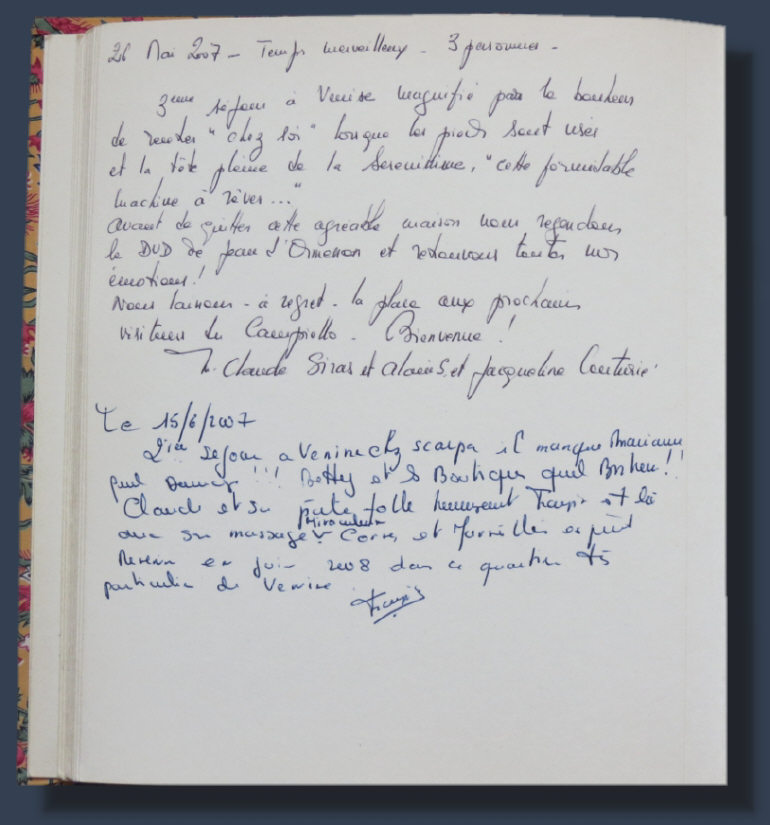 26 Mai 2007 - Temps merveilleux - 3 personnes -
3eme séjour à Venise magnifié par le bonheur
de rentrer "chez soi" lorsque les pieds sont usés
et la tête pleine de la Serenissime, "cette formidable
machine à rêver..."
Avant de quitter cette agréable maison nous regardons
le DVD de Jean d'Ormesson et retrouvons toutes nos
émotions!
Nous laissons - à regret - la place aux prochains
visiteurs du Campiello. Bienvenue!
Claude Siras et Alain S. et Jacqueline Couturie
Le 15/6/2007
séjour a Venise chez scarpa il manque Mariann
quel !!! Betty et s Boutique quel Bonheur!!
Claude et sa folle heureusement est là
avec son massage Miraculeux et
Revenir en Juin 2008 dans ce quartier très
particulier de Venise